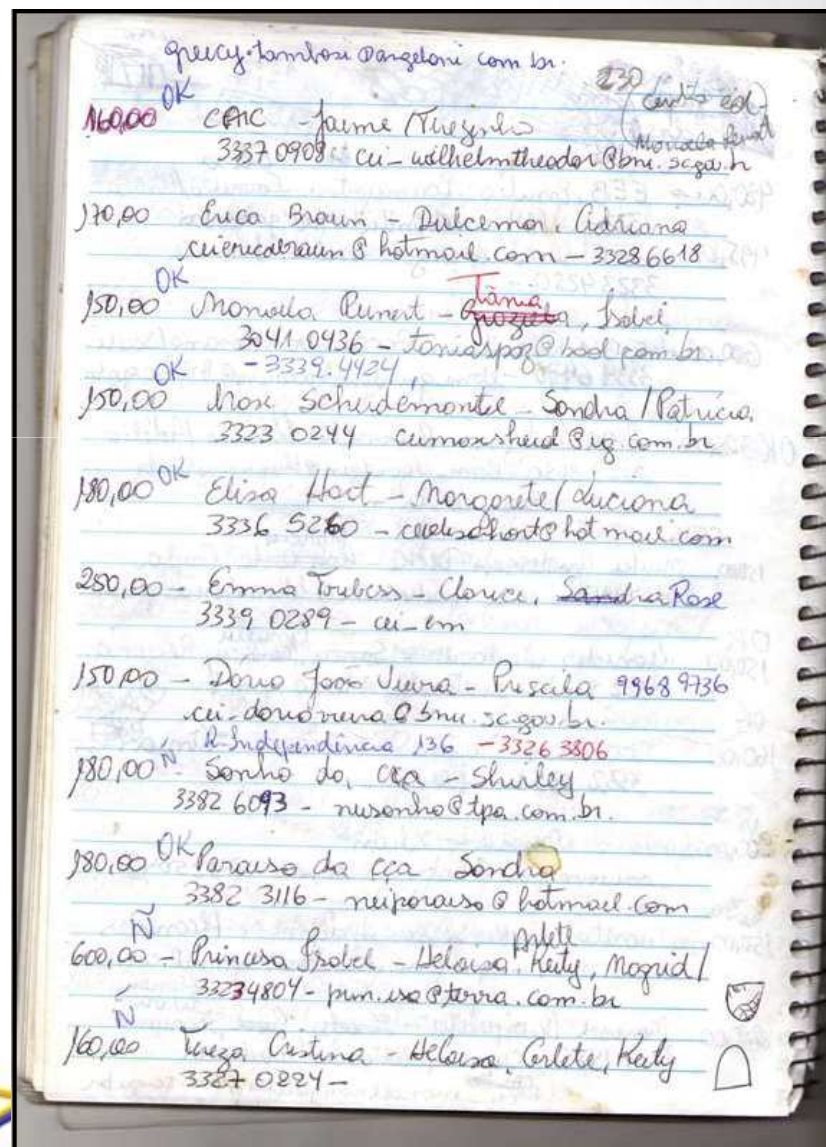 greicy.tambosi@angeloni.com.br.
230
OK
160,00 CAIC - Jaime / Therezinha
3337 0908 - cei-wilhelmtheodor@bnu.sc.gov.br
170,00 Erica Braun - Dulcemar, Adriana
ceiericabraun@hotmail.com - 33286618
OK
Tânia
150,00 Manoela - Isabel
3041 0436 - taniaspoz@bol.com.br
- 3339.4424
OK
150,00 - Sandra / Patricia
3323 0244 @ig.com.br
OK
180,00 Elisa Hort - Margarete / Luciana
3336 5260 - ceielisahort@hotmail.com
250,00 - Emma - Clarice, Sandra Rose
3339 0289 - cei-em
150,00 - Dario João Vieira - Priscila 9968 9736
cei-dariovieira@bnu.sc.gov.br.
R-Independência 136 - 3326 3806
180,00 N - Sonho da cça - Shirley
3382 6093 - nusonho@tpa.com.br.
180,00 OK Paraiso da cça Sandra
3382 3116 - neiparaiso@hotmail.com
Ñ
Arlete
600,00 - Princesa Isabel - Heloisa, Keity, Magrid /
33234804 - prin.isa@terra.com.br
N
160,00 Tereza Cristina - Heloisa, Arlete, Keity
3327 0224 -